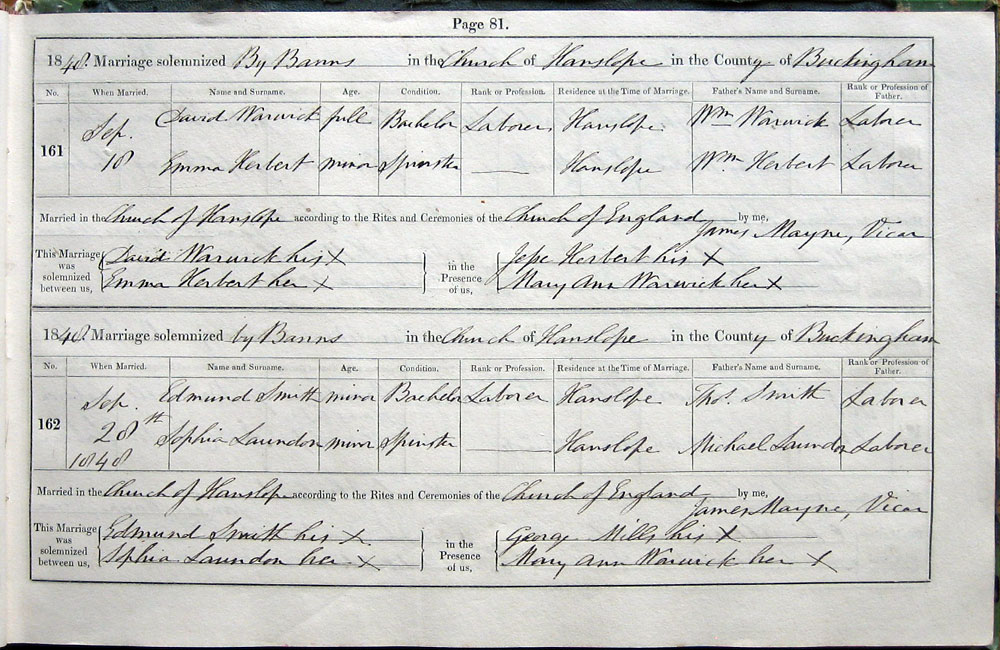 Page 81.
1848. Marriage solemnized By Banns in the Church of Hanslope in the County of Buckingham
No. When Married. Name and Surname. Age. Condition. Rank or Profession. Residence at the Time of Marriage. Father's Name and Surname. Rank or Profession of Father.
161 Sep. 18 David Warwick full Bachelor Laborer Hanslope Wm Warwick Laborer
Emma Herbert minor Spinster Hanslope Wm Herbert Laborer
Married in the Church of Hanslope according to the Rites and Ceremonies of the Church of England by me,
James Mayne, Vicar
This Marriage was solemnized between us, David Warwick his X in the Presence of us, Jesse Herbert his X
Emma Herbert her X Mary Ann Warwick her X
1848. Marriage solemnized by Banns in the Church of Hanslope in the County of Buckingham
No. When Married. Name and Surname. Age. Condition. Rank or Profession. Residence at the Time of Marriage. Father's Name and Surname. Rank or Profession of Father.
162 Sep. 28th 1848 Edmund Smith minor Bachelor Laborer Hanslope Thos. Smith Laborer
Sophia Laundon minor Spinster Hanslope Michael Laundon Laborer
Married in the Church of Hanslope according to the Rites and Ceremonies of the Church of England by me,
James Mayne, Vicar
This Marriage was solemnized between us, Edmund Smith his X in the Presence of us, George Mills his X
Sophia Laundon her X Mary Ann Warwick her X